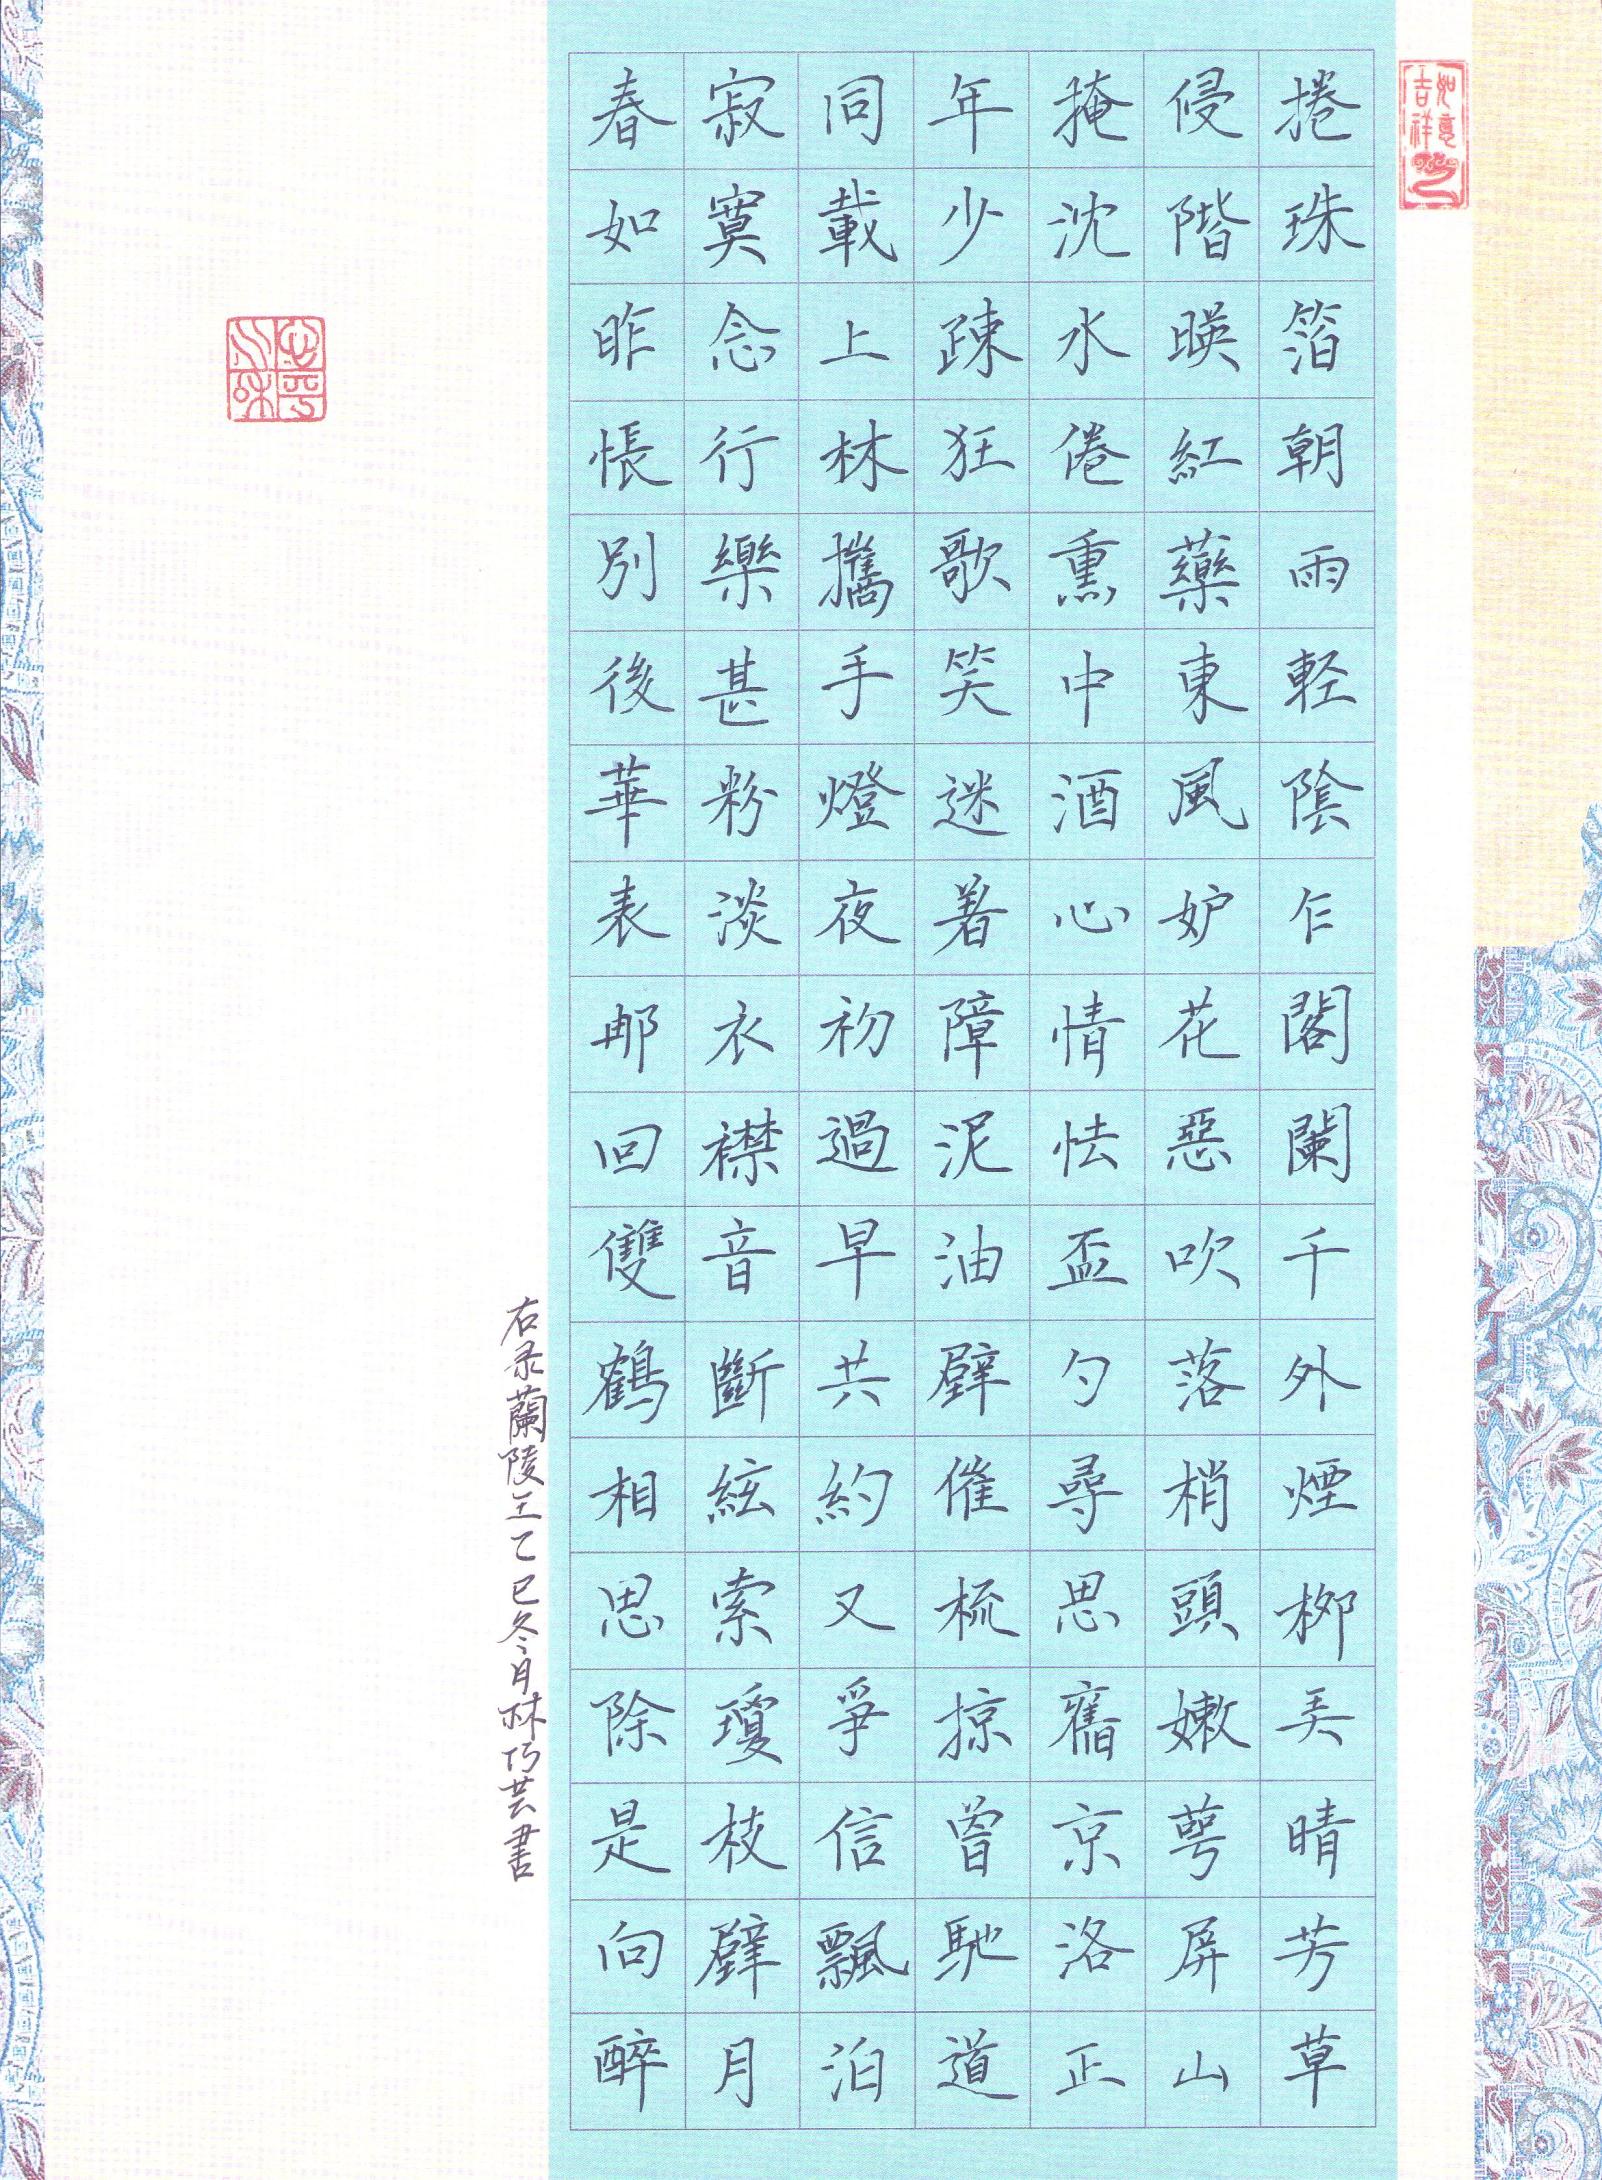 如意吉祥
捲珠箔朝雨軽陰乍閣闌千外煙栁弄晴芳草
侵階暎紅藥東風妒花惡吹落梢頭嫩萼屏山
掩沈水倦熏中酒心情怯盃勺尋思舊京洛正
年少疎狂歌笑迷著障泥油壁催梳掠曾馳道
同載上林攜手燈夜初過早共約又爭信飄泊
寂寞念行樂甚粉淡衣襟音斷絃索瓊枝璧月
春如昨悵別後華表那回雙鶴相思除是向醉
右录蘭陵王乙巳冬月林巧芸書